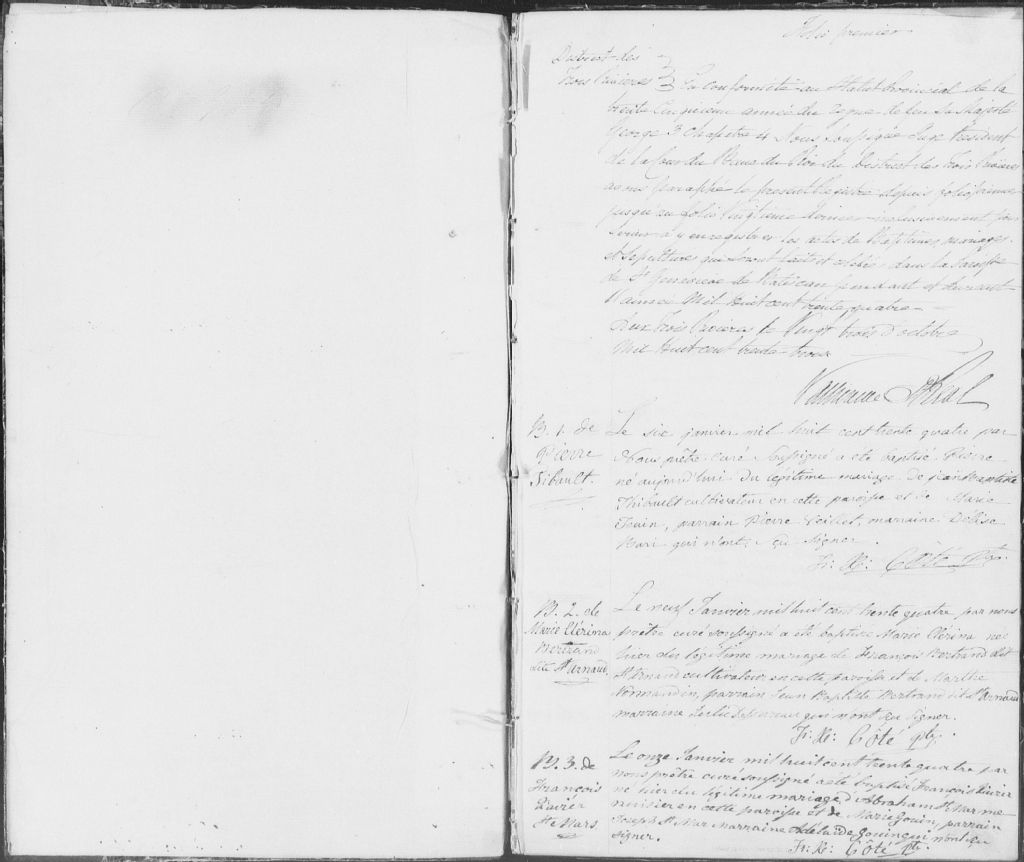 Folio premier
District des
Trois Rivieres } En Conformité au Statut Provincial de la
trente Cinquieme année du regne de feu Sa Majesté
George 3 Chapitre 4 Nous Soussigné Juge Resident
de la Cour du Banc du Roi du District des Trois Rivieres
avons paraphé le present Registre depuis folio premier
jusqu'au folio Vingtieme dernier inclusivement pour
servir a y enregistrer les actes de Baptêmes mariages
et Sepultures qui seront faits et célébrés dans la Paroisse
de Ste Genevieve de Batiscan pendant et durant
l'année Mil huit cent trente quatre
Aux Trois Rivieres le Vingt trois d'octobre
Mil huit cent trente trois
B. 1. de
Pierre
Tibault.
Le six janvier mil huit cent trente quatre par
Nous prêtre curé soussigné a été baptisé Pierre
né aujourd'hui du légitime mariage de jean Baptiste
Thibault cultivateur en cette paroisse et de Marie
parrain Pierre Veillet, marraine
qui n'ont sçu signer.
Fr: X: Côté Ptr.
B. 2. de
Marie Clérina
Bertrand
dite St Arnaud
Le neuf Janvier mil huit cent trente quatre par nous
prêtre curé soussigné a été baptisée Marie Clérina née
hier du légitime mariage de François Bertrand dit
St Arnaud cultivateur en cette paroisse et de Marthe
Normandin, parrain Jean Baptiste Bertrand dit St Arnaud
marraine qui n'ont sçu signer.
Fr: X: Côté ptr.
B. 3. de
François
Xavier
St Mars
Le onze Janvier mil huit cent trente quatre par
nous prêtre curé soussigné a été baptisé François Xavier
né hier du légitime mariage d'Abraham St Mar me
nuisier en cette paroisse et de Marie Gouin, parrain
Joseph St Mar Marraine Adelaïde Gouin qui n'ont sçu
signer.
Fr: X: Côté Ptr.